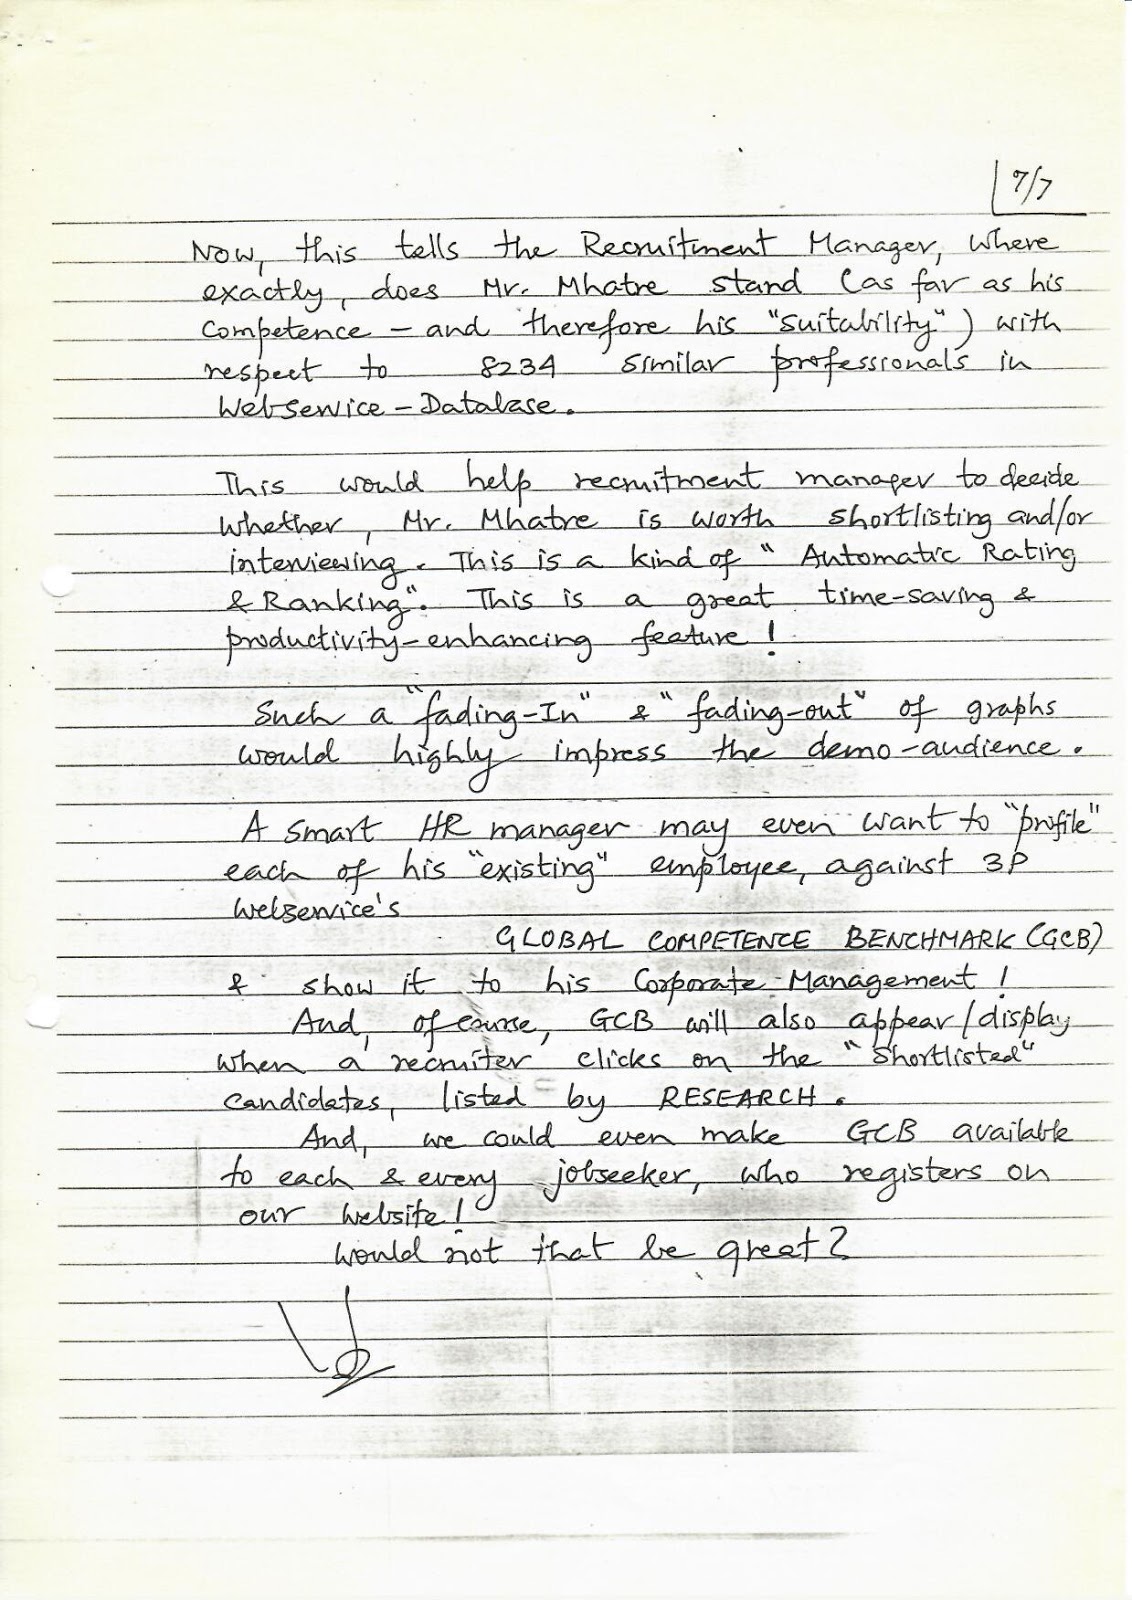 7/7
Now, this tells the Recruitment Manager, where
exactly, does Mr. Mhatre stand (as far as his
competence - and therefore his "suitability") with
respect to 8234 similar professionals in
Webservice - Database.
This would help recruitment manager to decide
whether, Mr. Mhatre is worth shortlisting and/or
interviewing. This is a kind of "Automatic Rating
& Ranking". This is a great time-saving &
productivity-enhancing feature!
Such a "fading-In" & "fading-out" of graphs
would highly impress the demo-audience.
A smart HR manager may even want to "profile"
each of his "existing" employee, against 3P
Webservice's
GLOBAL COMPETENCE BENCHMARK (GCB)
& show it to his Corporate Management!
And, of course, GCB will also appear/display
when a recruiter clicks on the "Shortlisted"
candidates, listed by RESEARCH.
And, we could even make GCB available
to each & every jobseeker, who registers on
our website!
Would not that be great?